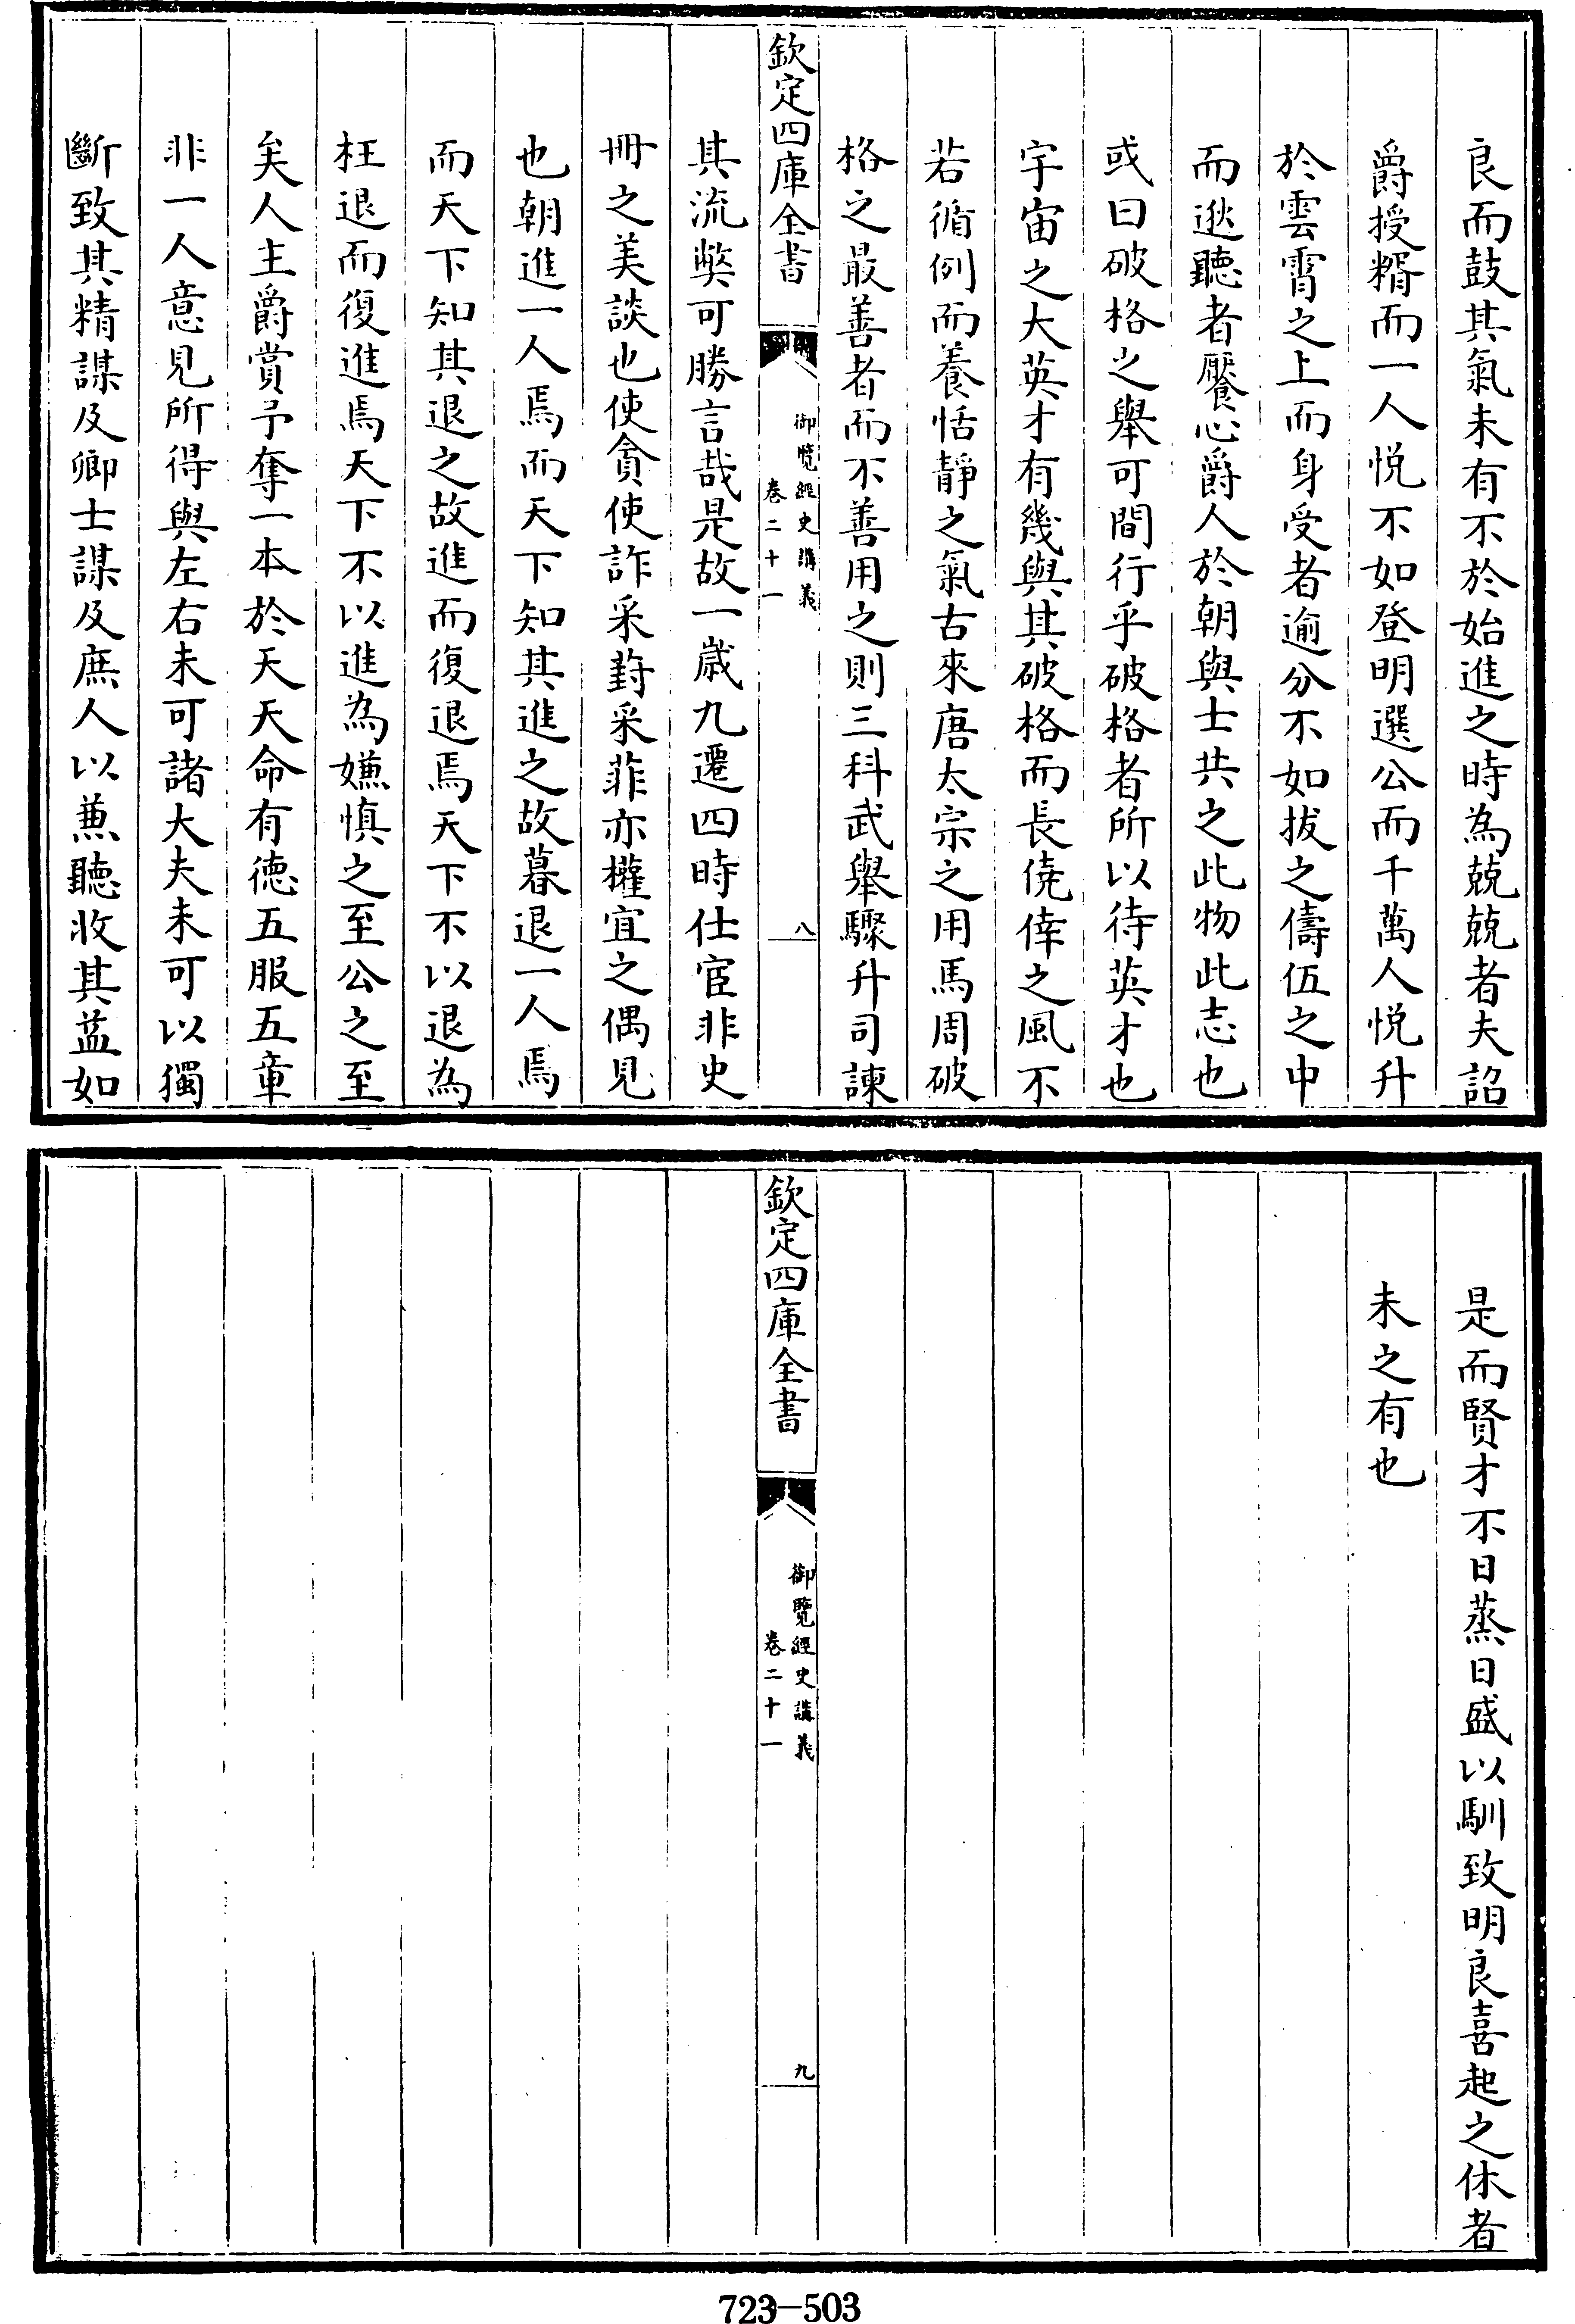 良而鼓其氣未有不於始進之時為兢兢者夫詔
爵授糈而一人悦不如登明選公而千萬人悦升
於雲霄之上而身受者逾分不如拔之儔伍之中
而逖聽者饜心爵人於朝與士共之此物此志也
或曰破格之舉可間行乎破格者所以待英才也
宇宙之大英才有幾與其破格而長僥倖之風不
若循例而養恬靜之氣古來唐太宗之用馬周破
格之最善者而不善用之則三科武舉驟升司諫
欽定四庫全書
御覽經史講義
卷二十一
八
其流弊可勝言哉是故一歲九遷四時仕宦非史
冊之美談也使貪使詐采葑采菲亦權宜之偶見
也朝進一人焉而天下知其進之故暮退一人焉
而天下知其退之故進而復退焉天下不以退為
枉退而復進焉天下不以進為嫌慎之至公之至
矣人主爵賞予奪一本於天天命有德五服五章
非一人意見所得與左右未可諸大夫未可以獨
斷致其精謀及卿士謀及庶人以兼聽收其益如
是而賢才不日蒸日盛以馴致明良喜起之休者
未之有也
欽定四庫全書
御覽經史講義
卷二十一
九
723-503